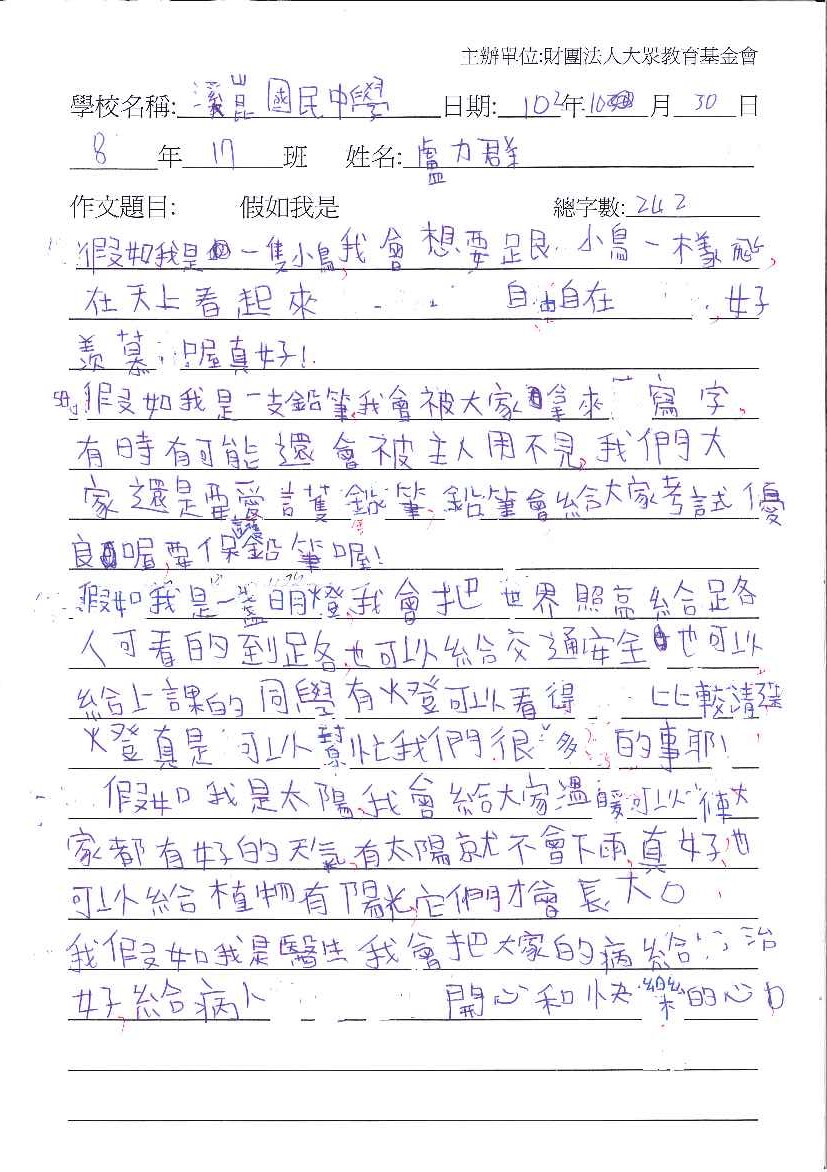 主辦單位:財團法人大眾教育基金會
學校名稱: 溪崑國民中學 日期: 102年10月30日
8年17班 姓名: 盧力群
作文題目: 假如我是 總字數: 242
假如我是一隻小鳥,我會想要跟小鳥一樣飛,
在天上看起來 自由自在 ,好
羨慕,喔真好!
假如我是一支鉛筆,我會被大家拿來寫字,
有時有可能還會被主人用不見,我們大
家還是要愛護鉛筆,鉛筆會給大家考試優
良喔,要保護鉛筆喔!
假如我是一盞明燈,我會把世界照亮給路
人可看的到路,也可以給交通安全也可以
給上課的同學有燈可以看得 比較清楚
燈真是可以幫忙我們很多的事耶!
假如我是太陽,我會給大家溫暖可以使大
家都有好的天氣,有太陽就不會下雨,真好,也
可以給植物有陽光,它們才會長大。
我假如我是醫生我會把大家的病給治
好,給病人 開心和快樂的心